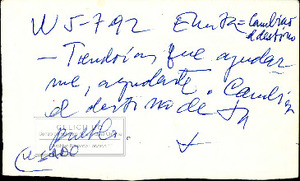 W 5-7 92 = Cambiar
el destino
- Tendrías que ayudar
me, ayudarte. Cambiar
el destino de tu
pueblo.